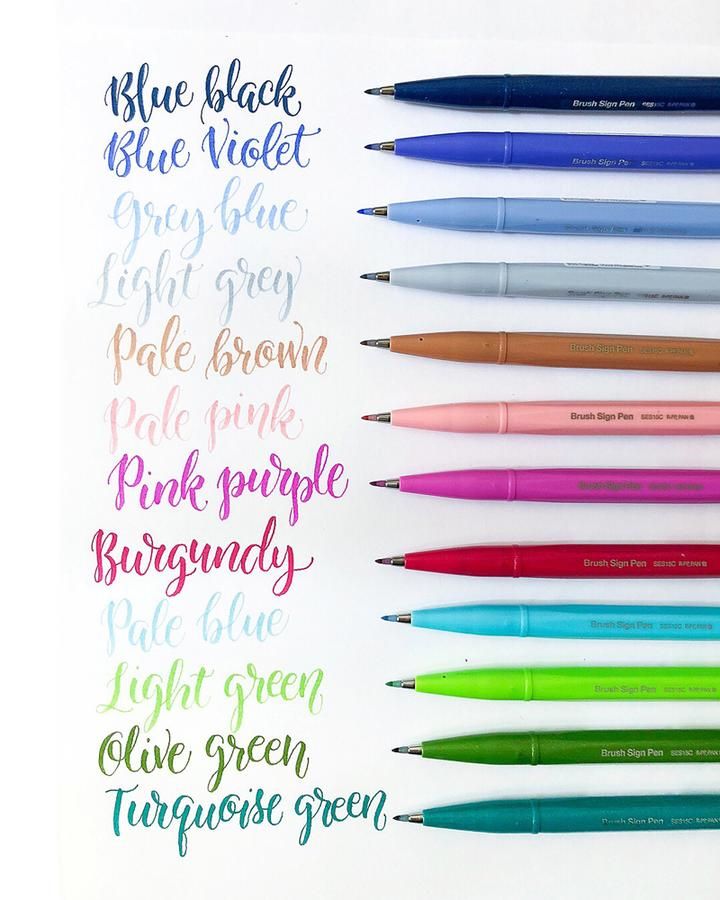 Blue black
Brush Sign Pen SES15C
Blue Violet
Brush Sign Pen
Grey blue
Brush Sign Pen
Light grey
Brush Sign Pen
Pale brown
Brush Sign Pen SES15C
Pale pink
Brush Sign Pen SES15C
Pink purple
Brush Sign Pen
Burgundy
Brush Sign Pen SES15C
Pale blue
Brush Sign Pen SES15C
Light green
Brush Sign Pen SES15C
Olive green
Brush Sign Pen SES15C
Turquoise green
Brush Sign Pen SES15C